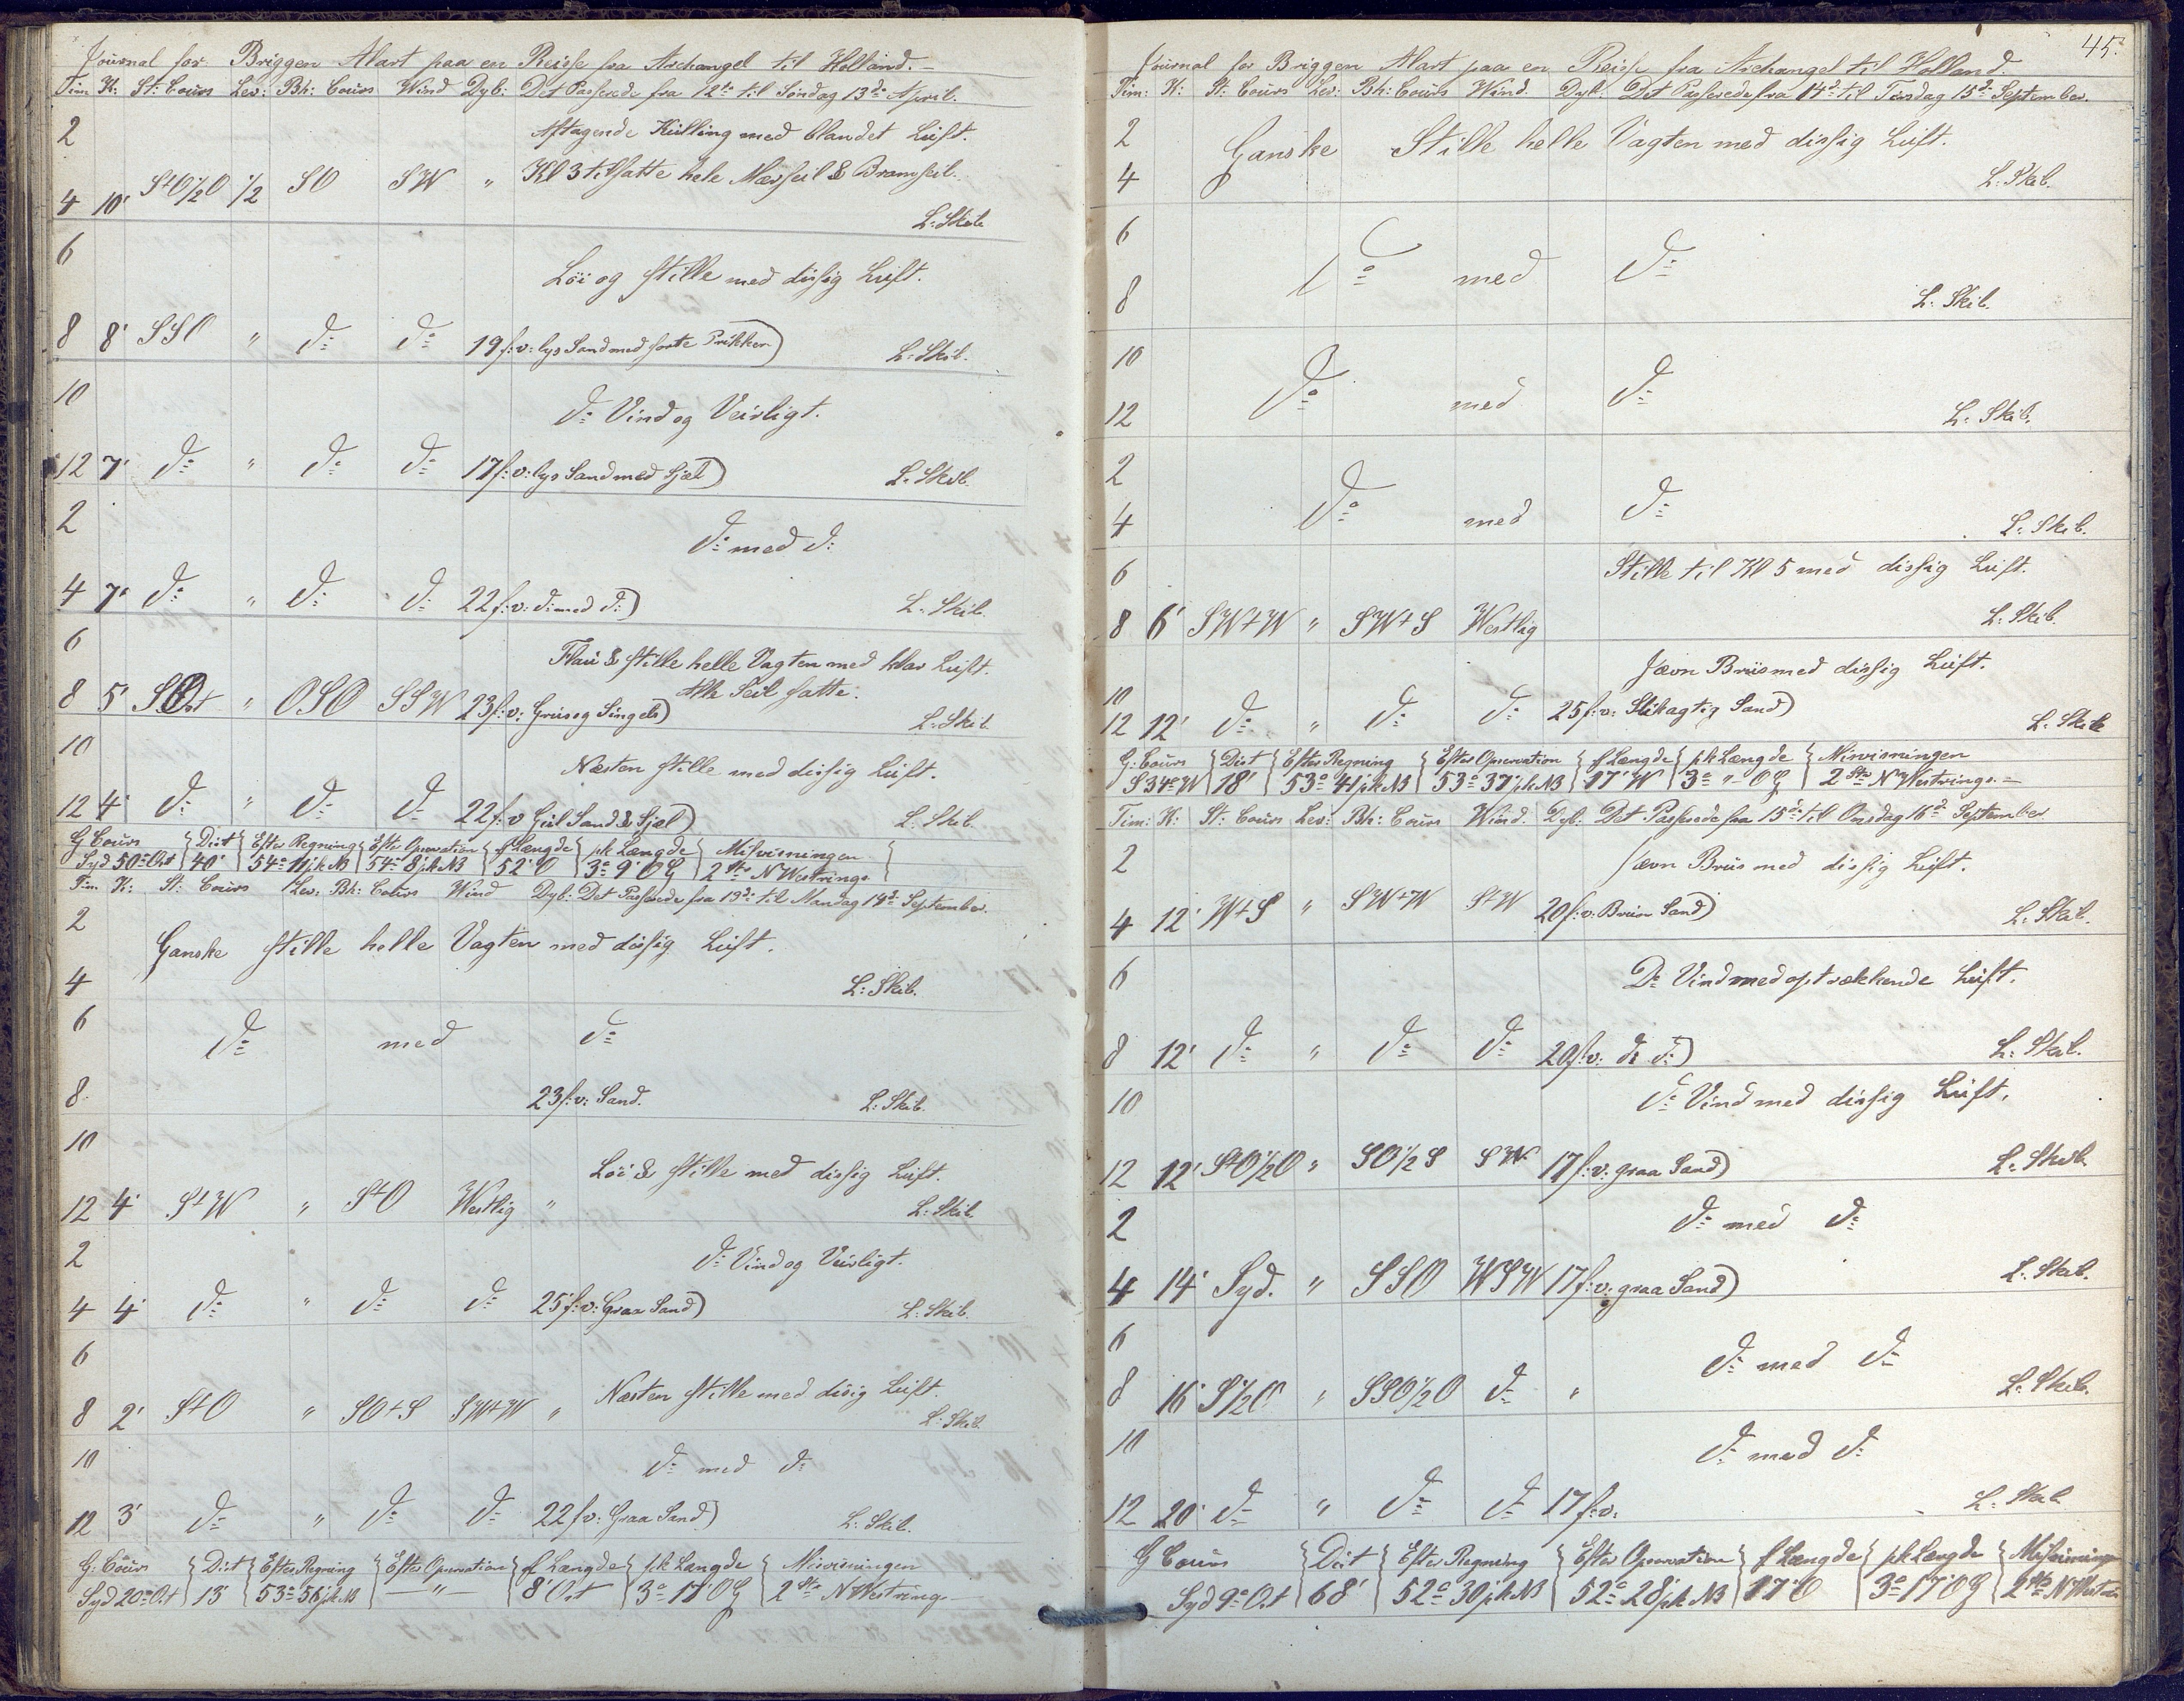 Journal for Briggen Alart paa en Reise fra Archangel til Holland.
Tim: K: St: Cours Lev: Bh: Cours Wind Dyb: Det Passerede fra 12te til Söndag 13de April.
2 Aftagende Kulling med blandet Luft.
4 10' StO½O ½ SO SW " Kl 3 tilsatte hele Mærseil & Bramseil.
L: Skib
6
Löi og stille med dissig Luft.
8 8' SSO " do do 19 f: v: lys Sand med sorte Prikker)
L: Skib.
10
do Vind og Veirligt.
12 7' do " do do 17 f: v: lys Sand med Sjæl)
L: Skib.
2
do med do
4 7' do " do do 22 f: v: do med do)
L: Skib.
6
Flau & stille helle Vagten med klar Luft.
Alle Seil satte.
8 5' SOOst " OSO SSW 23 f: v: Gruus og Singels)
L: Skib
10
Næsten stille med dissig Luft.
12 4' do " do do 22 f: v Guul Sand & Sjæl)
L: Skib.
G Cours Dist Efter Regning Efter Opservation f Længde pk Længde Misvisningen
Syd 50° Ost 40' 54° 11' pk NB 54° 8' pk NB 52' O 3° 9' OG 2 Str NWestrings
Tim K: St: Cours Lev: Bh: Cours Wind Dyb: Det Passerede fra 13de til Mandag 14de September.
2
Ganske stille helle Vagten med dissig Luft.
4
L: Skib.
6
do med do
8
23 f: v: Sand.
L: Skib.
10
Löi & stille med dissig Luft.
12 4' StW " StO Westlig "
L: Skib.
2
do Vind og Veirligt.
4 4' do " do do 25 f: v: Graa Sand)
L: Skib.
6
Næsten stille med disig Luft.
8 2' StO " SOtS SWtW "
L: Skib.
10
do med do
12 3' do " do do 22 f v: Graa Sand)
L: Skib.
G: Cours Dist Efter Regning Efter Opservation f Længde pk Længde Misvisningen
Syd 20° Ost 13' 53° 56' pk NB — " — 8' Ost 3° 17' OG 2 Str NWestrings
45.
Journal for Briggen Alart paa en Reise fra Archangel til Holland.
Tim: K: St: Cours Lev: Bh: Cours Wind. Dyb: Det Passerede fra 14de til Tirsdag 15de September.
2
Ganske Stille helle Vagten med dissig Luft.
4
L: Skib.
6
do med do
8
L: Skib.
10
do med do
12
L: Skib.
2
do med do
4
L: Skib.
6
Stille til Kl 5 med dissig Luft.
8 6' SWtW " SWtS Westlig
L: Skib.
Jævn Briis med dissig Luft.
10
12 12' do " do do 25 f: v: Slikagtig Sand)
L: Skib
G: Cours Dist Efter Regning Efter Opservation f Længde pk Længde Misvisningen
S 34° W 18' 53° 41' pk NB 53° 37' pk NB 17' W 3° " OG 2 Str NWestrings
Tim: K: St: Cours Lev: Bh: Cours Wind. Dyb. Det Passerede fra 15de til Onsdag 16de September
2
Jævn Briis med dissig Luft.
4 12' WtS " SWtW StW 20 f: v: Bruun Sand)
L: Skib.
6
Do Vind med optrækkende Luft.
8 12' do " do do 20 f: v: do do)
L: Skib.
10
do Vind med dissig Luft.
12 12' StO½O " SO½S SW 17 f: v: graa Sand)
L: Skib
2
do med do
4 14' Syd. " SSO WSW 17 f: v: graa Sand)
L: Skib.
6
do med do
8 16' S½O " SSO½O do "
L: Skib.
10
do med do
12 20' do " do do 17 f: v:
L: Skib
G Cours Dist Efter Regning Efter Opservation f Længde pk Længde Misvisninge
Syd 9° Ost 68' 52° 30' pk NB 52° 28' pk NB 17' O 3° 17' OG 2 Str NWest